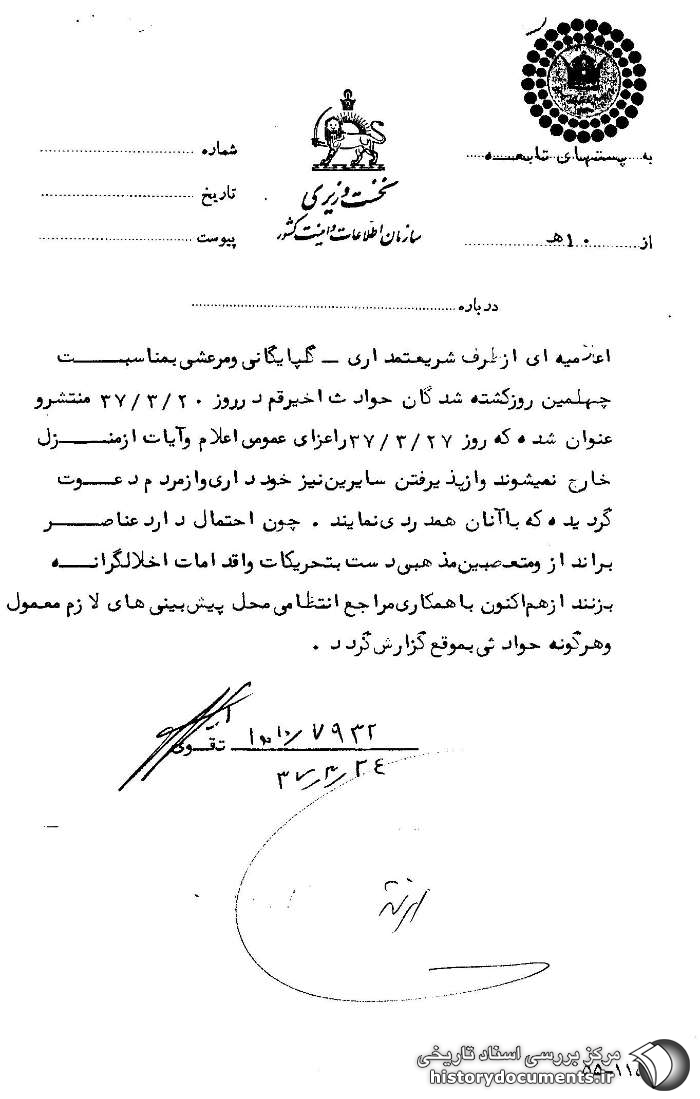 به پستهای تابعه
از ۱۰هـ
نخست وزیری
سازمان اطلاعات و امنیت کشور
شماره
تاریخ
پیوست
درباره
اعلامیه ای ازطرف شریعتمداری ــ گلپایگانی ومرعشی بمناسبت
چهلمین روزکشته شدگان حوادث اخیرقم درروز ۳۷/۳/۲۰ منتشرو
عنوان شده که روز ۳۷/۳/۲۷راعزای عمومی اعلام وآیات ازمنزل
خارج نمیشوند وازپذیرفتن سایرین نیز خودداری وازمردم دعوت
گردیده که باآنان همدردی نمایند . چون احتمال دارد عناصر
برانداز ومتعصبین مذهبی دست بتحریکات واقدامات اخلالگرانه
بزنند ازهم اکنون باهمکاری مراجع انتظامی محل پیش بینی های لازم معمول
وهرگونه حوادثی بموقع گزارش گردد .
۷۹۳۲
تقوی
۳۷/۳/۲٤
مرکز بررسی اسناد تاریخی
historydocuments.ir